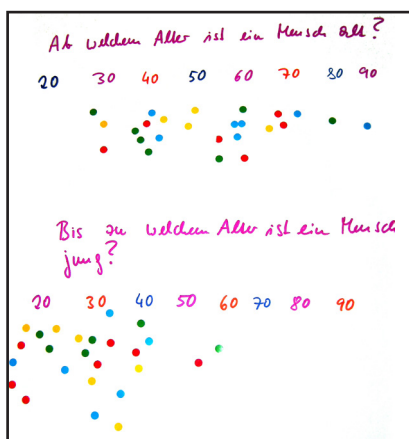 Ab welchem Alter ist ein Mensch alt?
20 30 40 50 60 70 80 90
Bis zu welchem Alter ist ein Mensch
jung?
20 30 40 50 60 70 80 90